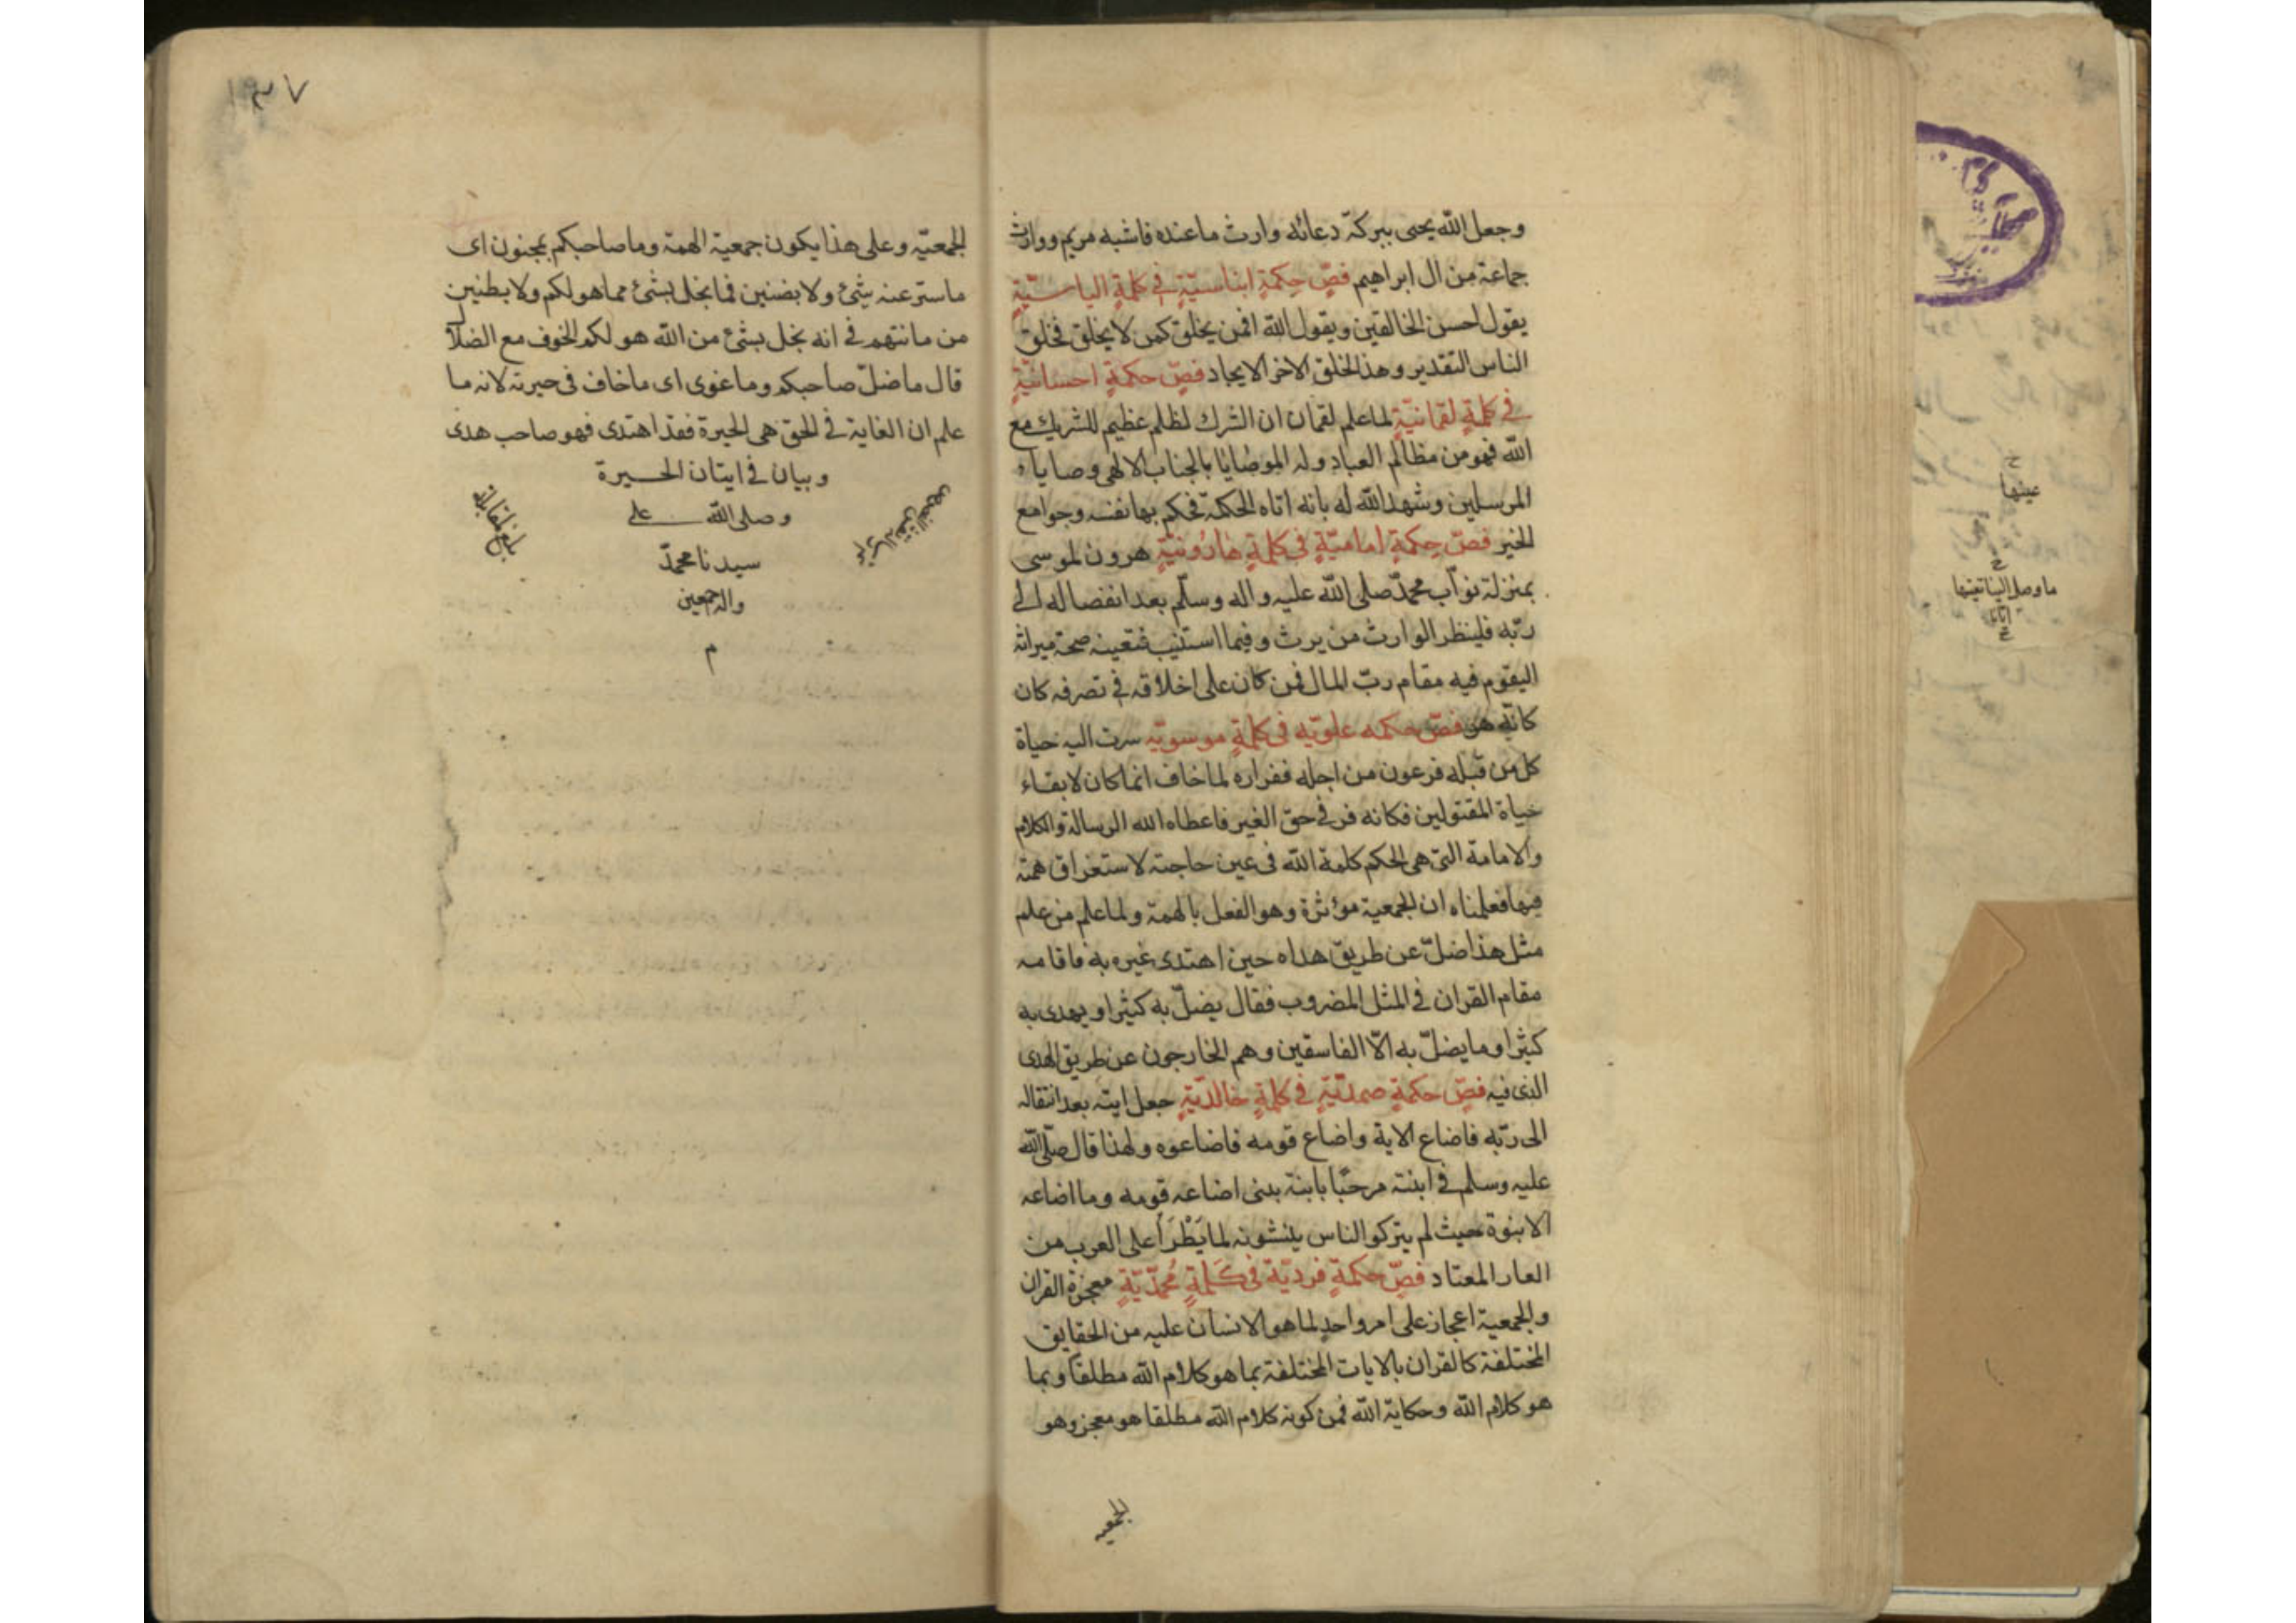 وجعل الله يحيى ببركة دعائه وارث ما عنده فاشبه مريم ووارث
جماعة من ال ابراهيم فصّ حِكمةٍ ايناسيّةٍ في كلمةٍ الياسيّةٍ
يقول احسن الخالقين ويقول الله افمن يخلق كمن لا يخلق فخلق
الناس التقدير وهذا الخلق الاخر الايجاد فصّ حكمةٍ احسانيّةٍ
في كلمةٍ لقمانيّةٍ لما علم لقمان ان الشرك لظلم عظيم للشريك مع
الله فهو من مظالم العباد وله الوصايا بالجناب الالهى وصاياه
المرسلين وشهد الله له بانه اتاه الحكمة فحكم بها نفسه وجوامع
الخير فصّ حِكمةٍ اماميّةٍ في كلمةٍ هارُونيّةٍ هرون لموسى
بمنزلة نوّاب محمدّ صلى الله عليه واله وسلّم بعد انفصاله الى
ربّه فلينظر الوارث من يرث وفيما استنيب فتعينه صحة ميراثه
اليقوم فيه مقام ربّ المال فمن كان على اخلاقه في تصرفه كان
كانّه هو فصّ حكمه علويّه في كلمةٍ موسويّه سرت اليه حياة
كل من قبله فرعون من اجله ففراره لما خاف انما كان لابقاء
حياة المقتولين فكانه فر في حق الغير فاعطاه الله الرسالة والكلام
والامامة التى هى الحكم كلمة الله في عين حاجته لاستغراق همته
فيها فعلمناه ان الجمعية موثرة وهو الفعل بالهمة ولما علم من علم
مثل هذا ضلّ عن طريق هداه حين اهتدى غيره به فاقامه
مقام القران في المثل المضروب فقال يضلّ به كثيرا ويهدى به
كثيرا وما يضلّ به الّا الفاسقين وهم الخارجون عن طريق الهدى
الذى فيه فصّ حكمةٍ صمديّةٍ في كلمةٍ خالديّةٍ جعل ايته بعد انتقاله
الى ربّه فاضاع الاية واضاع قومه فاضاعوه ولهذا قال صلّى الله
عليه وسلم في ابنته مرحبًا بابنة بنى اضاعه قومه وما اضاعه
الابنوة حيث لم يتركو الناس ينبشونه لما يَطْرَأ على العرب من
العار المعتاد فصّ حكمةٍ فرديّة في كَلمةٍ مُحمّديّةٍ معجزة القران
والجمعية اعجاز على امر واحدٍ لما هو الانسان عليه من الحقايق
المختلفة كالقران بالايات المختلفة بما هو كلام الله مطلقا وبما
هو كلام الله وحكاية الله فمن كونه كلام الله مطلقا هو معجز وهو
الجمعيه
١٣٧
الجمعيّه وعلى هذا يكون جمعية الهمة وما صاحبكم بمجنون اى
ما ستر عنه شئ ولا بضنين فما بخل بشئ مما هو لكم ولا بظنين
من ما نتهم في انه بخل بشئ من الله هو لكم الخوف مع الضلال
قال ما ضلّ صاحبكم وما غوى اى ما خاف في حيرته لانه ما
علم ان الغاية في الحق هى الحيرة فقد اهتدى فهو صاحب هدى
وبيان في ايتان الحيرة
وصلى الله على
سيدنا محمدّ
واله اجمعين
م
بلغ مقابلة
عينها
ما وصل الينا تعينها